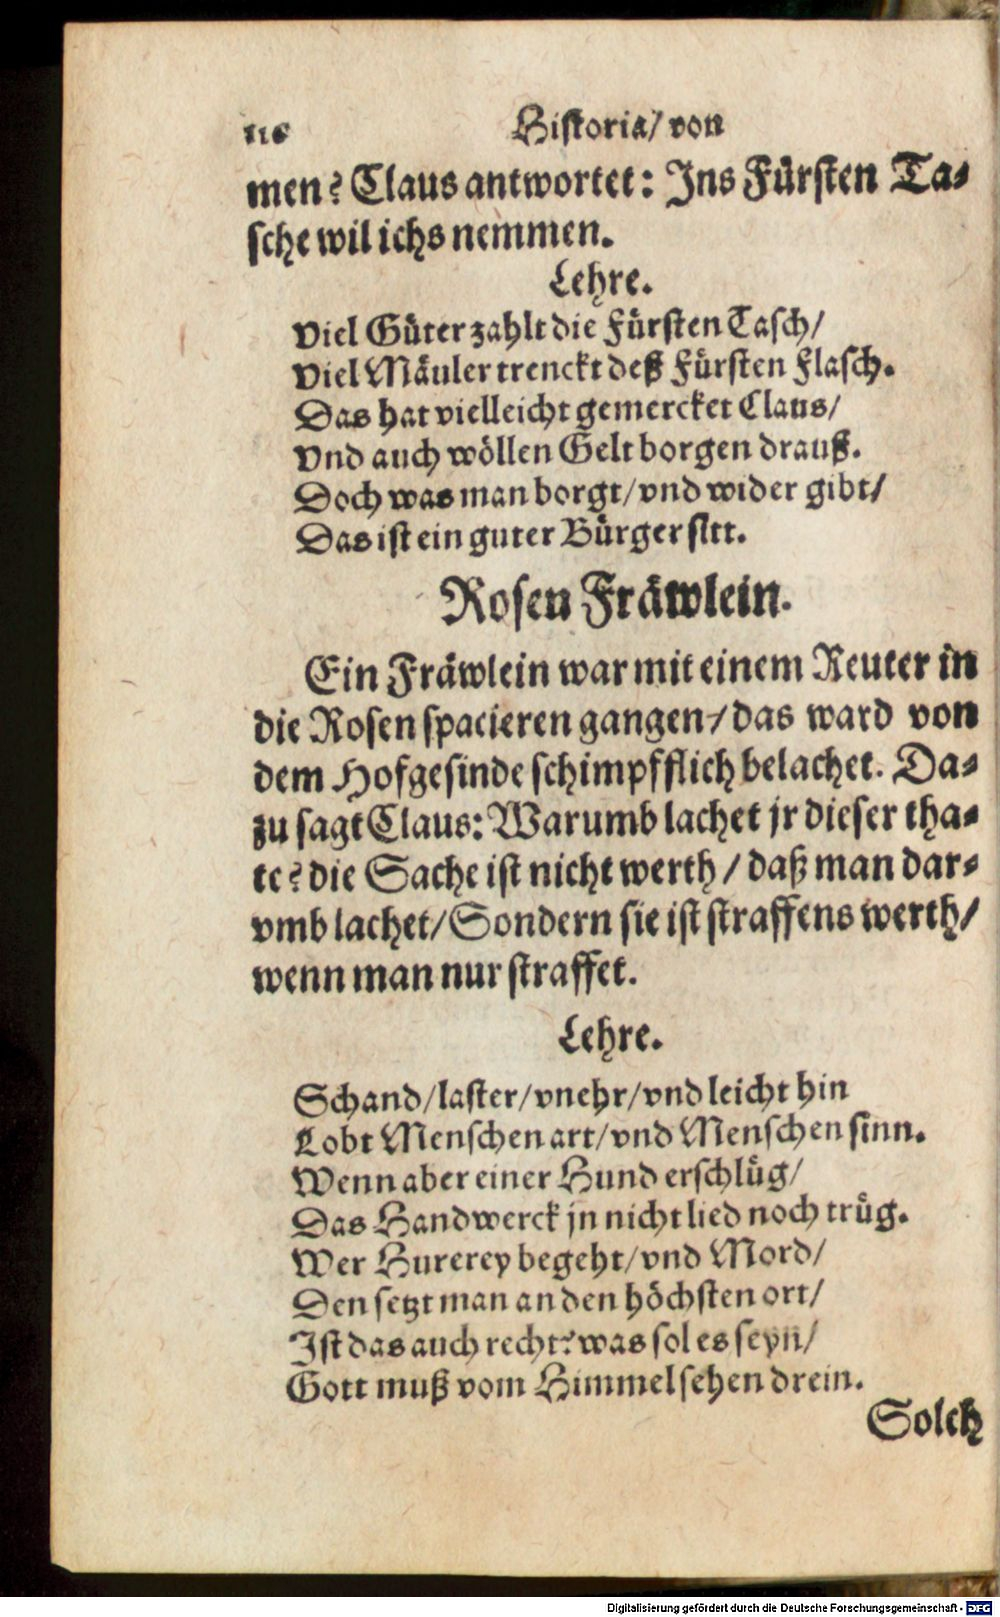 116 Historia/ von
men? Claus antwortet: Ins Fürsten Ta-
sche wil ichs nemmen.
Lehre.
Viel Güter zahlt die Fürsten Tasch/
Viel Mäuler trenckt deß Fürsten Flasch.
Das hat vielleicht gemercket Claus/
Vnd auch wöllen Gelt borgen drauß.
Doch was man borgt/ vnd wider gibt/
Das ist ein guter Bürger sitt.
Rosen Fräwlein.
Ein Fräwlein war mit einem Reuter in
die Rosen spacieren gangen/ das ward von
dem Hofgesinde schimpfflich belachet. Da-
zu sagt Claus: Warumb lachet jr dieser tha-
te? die Sache ist nicht werth/ daß man dar-
vmb lachet/ Sondern sie ist straffens werth/
wenn man nur straffet.
Lehre.
Schand/ laster/ vnehr/ vnd leicht hin
Lobt Menschen art/ vnd Menschen sinn.
Wenn aber einer Hund erschlüg/
Das Handwerck jn nicht lied noch trüg.
Wer Hurerey begeht/ vnd Mord/
Den setzt man an den höchsten ort/
Ist das auch recht? was sol es seyn/
Gott muß vom Himmel sehen drein.
Solch
Digitalisierung gefördert durch die Deutsche Forschungsgemeinschaft - DFG